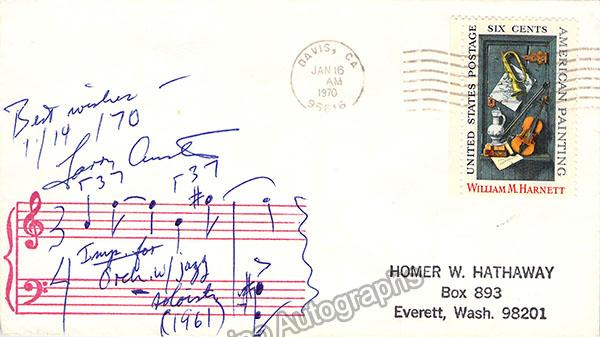 Best wishes —
1/14/70
Larry Austin
┌3┐ ┌3┐
3
4
Imp. for
Orch. w/ jazz
soloists
(1961)
DAVIS, CA
JAN 16
AM
1970
95616
UNITED STATES POSTAGE
SIX CENTS
AMERICAN PAINTING
WILLIAM M. HARNETT
HOMER W. HATHAWAY
Box 893
Everett, Wash. 98201
Autographs